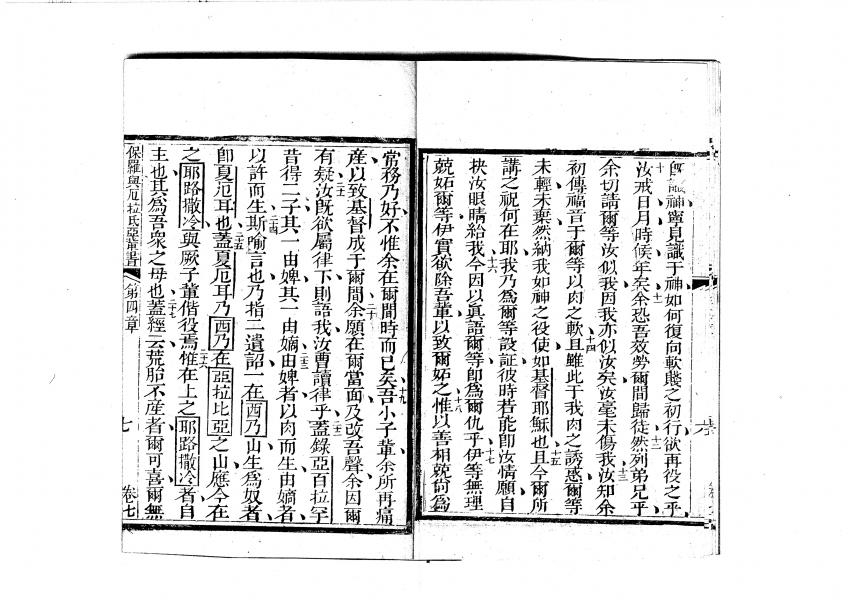 識神寧見識于神如何復向軟賤之初行欲再役之乎
十汝戒日月時候年矣十一余恐吾效勞爾間歸徒然十二列弟兄乎
余切請爾等汝似我因我亦似汝矣汝毫未傷我十三汝知余
初傳福音于爾等以肉之軟且十四雖此于我肉之誘惑爾等
未輕未棄然納我如神之役使如基督耶穌也且十五今爾所
講之祝何在耶我乃為爾等設証彼時若能即汝情願自
抉汝眼睛給我十六今因以真語爾等即為爾仇乎十七伊等無理
兢妬爾等伊實欲除吾輩以致爾妬之十八惟以善相兢尚為
常務乃好不惟余在爾間時而已矣十九吾小子輩余所再痛
產以致基督成于爾間二十余願在爾當面及改吾聲余因爾
有疑二一汝既欲屬律下則語我汝曹讀律乎二二蓋錄亞百拉罕
昔得二子其一由婢其一由嫡二三由婢者以肉而生由嫡者
以許而生二四斯喻言也乃指二遺詔一在西乃山生為奴者
即夏厄耳也二五蓋夏厄耳乃西乃在亞拉比亞之山應今在
之耶路撒冷與厥子輩偕役焉二六惟在上之耶路撒冷者自
主也其為吾眾之母也二七蓋經云荒胎不產者爾可喜爾無
保羅與厄拉氏亞輩書 第四章 七 卷七